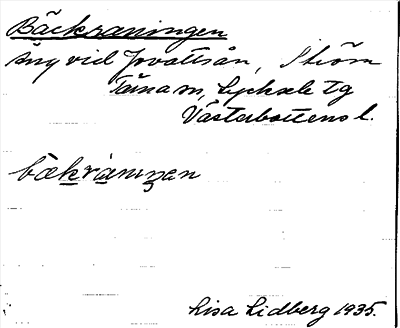 Bäckraningen
Äng vid Jovattsån, Ström
Tärna sn, Lycksele tg
Västerbottens l.
bækråniŋen
Lisa Lidberg 1935.